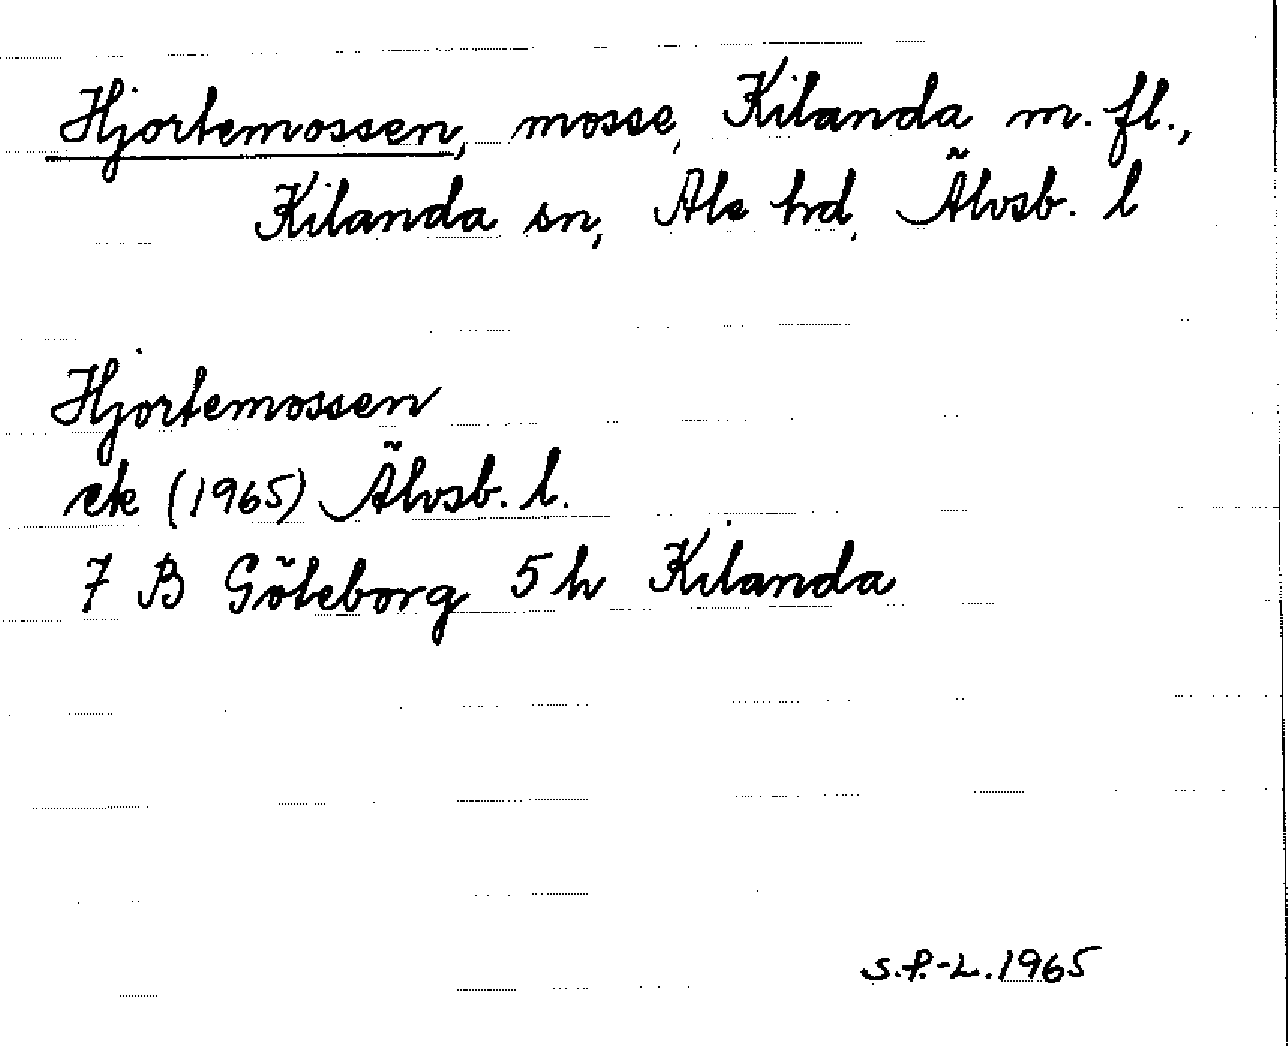 Hjortemossen, mosse, Kilanda m. fl.,
Kilanda sn, Ale hd, Älvsb. l
Hjortemossen
ek (1965) Älvsb. l.
7 B Göteborg 5 h Kilanda
S.P.-L. 1965